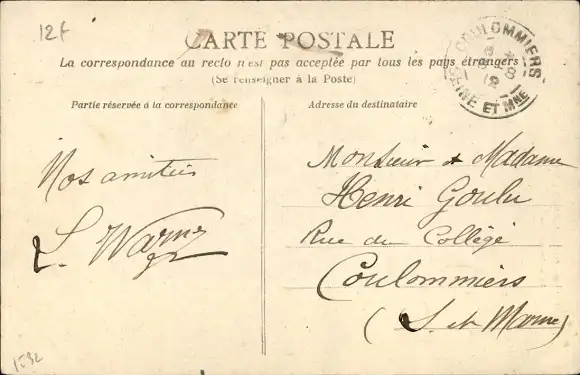 12f
CARTE POSTALE
La correspondance au recto n'est pas acceptée par tous les pays étrangers
(Se renseigner à la Poste)
COULOMMIERS
SEINE ET MNE
Partie réservée à la correspondance
Adresse du destinataire
Nos amitiés
L. Warnz
Monsieur & Madame
Henri Goulu
Rue du Collège
Coulommiers
(S. et Marne)